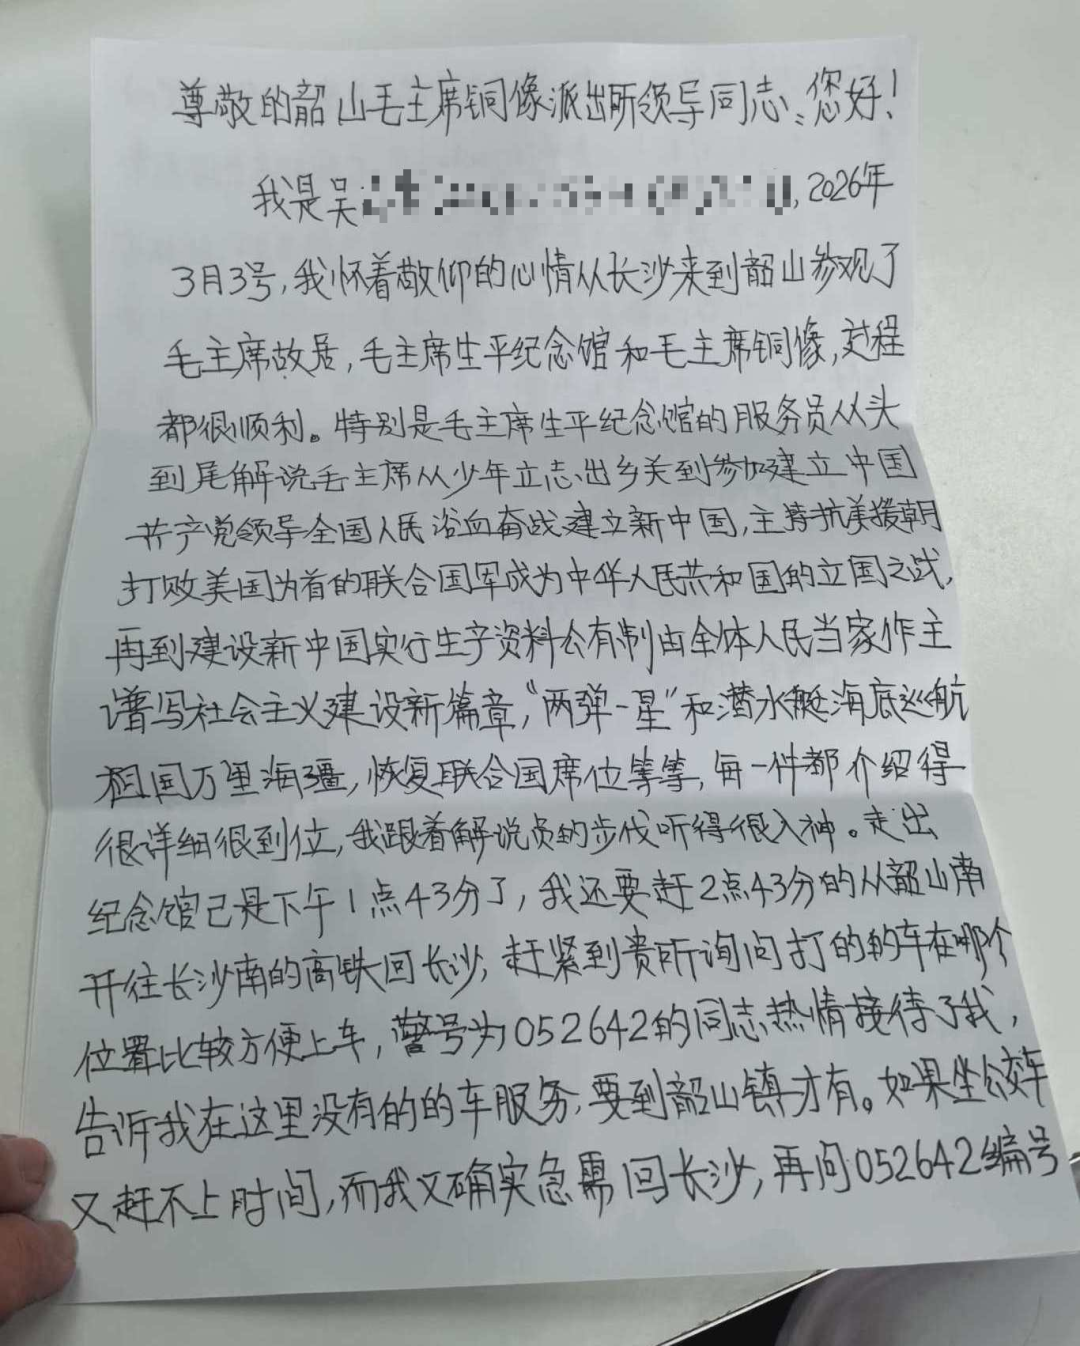 尊敬的韶山毛主席铜像派出所领导同志:您好!
我是吴 ,2026年
3月3号,我怀着敬仰的心情从长沙来到韶山参观了
毛主席故居,毛主席生平纪念馆和毛主席铜像,过程
都很顺利。特别是毛主席生平纪念馆的服务员从头
到尾解说毛主席从少年立志出乡关到参加建立中国
共产党领导全国人民浴血奋战建立新中国,主持抗美援朝
打败美国为首的联合国军成为中华人民共和国的立国之战,
再到建设新中国实行生产资料公有制由全体人民当家作主
谱写社会主义建设新篇章,“两弹一星”和潜水艇海底巡航
祖国万里海疆,恢复联合国席位等等,每一件都介绍得
很详细很到位,我跟着解说员的步伐听得很入神。走出
纪念馆已是下午1点43分了,我还要赶2点43分的从韶山南
开往长沙南的高铁回长沙,赶紧到贵所询问打的的车在哪个
位置比较方便上车,警号为052642的同志热情接待了我,
告诉我在这里没有的的车服务,要到韶山镇才有。如果坐公交车
又赶不上时间,而我又确实急需回长沙,再问052642编号